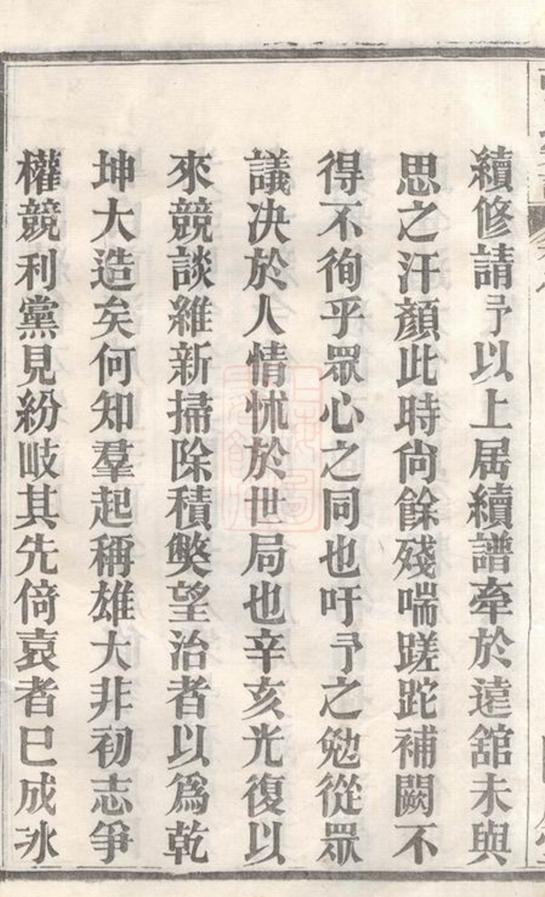 續修請予以上居續譜牽於遠舘未與
思之汗顏此時尙餘殘喘蹉跎補闕不
得不徇乎眾心之同也吁予之勉從眾
議决於人情怵於世局也辛亥光復以
來競談維新掃除積獘望治者以爲乾
坤大造矣何知羣起稱雄大非初志爭
權競利黨見紛岐其先倚袁者已成冰